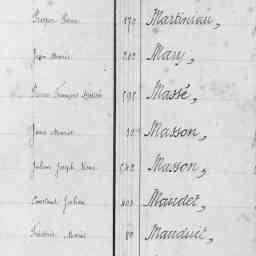 Prosper Pierre 570 Martiniau,
Jean Marie 202 Mary,
Pierre François 595 Massé,
Jean Marie Masson,
Julien Joseph René 502 Masson,
Constant Julien 203 Maudet,
Frédéric Marie 80 Mauduit,